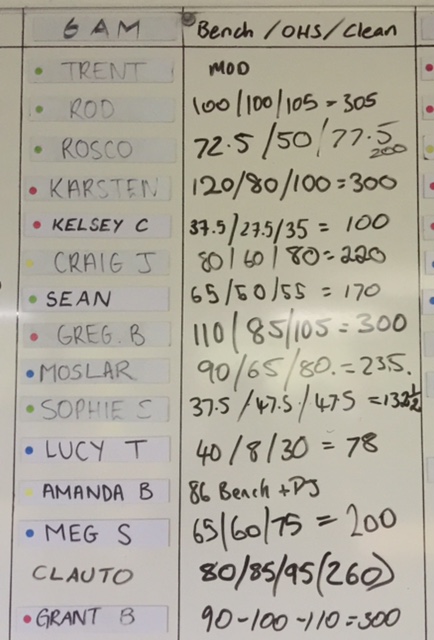 6 AM Bench / OHS / Clean
TRENT MOD
ROD 100/100/105 = 305
ROSCO 72.5/50/77.5
200
KARSTEN 120/80/100 = 300
KELSEY C 37.5/27.5/35 = 100
CRAIG J 80/60/80 = 220
SEAN 65/50/55 = 170
GREG. B 110/85/105 = 300
MOSLAR 90/65/80. = 235.
SOPHIE S 37.5/47.5/47.5 = 132½
LUCY T 40/8/30 = 78
AMANDA B 86 Bench + DJ
MEG S 65/60/75 = 200
CLAUTO 80/85/95(260)
GRANT B 90-100-110 = 300